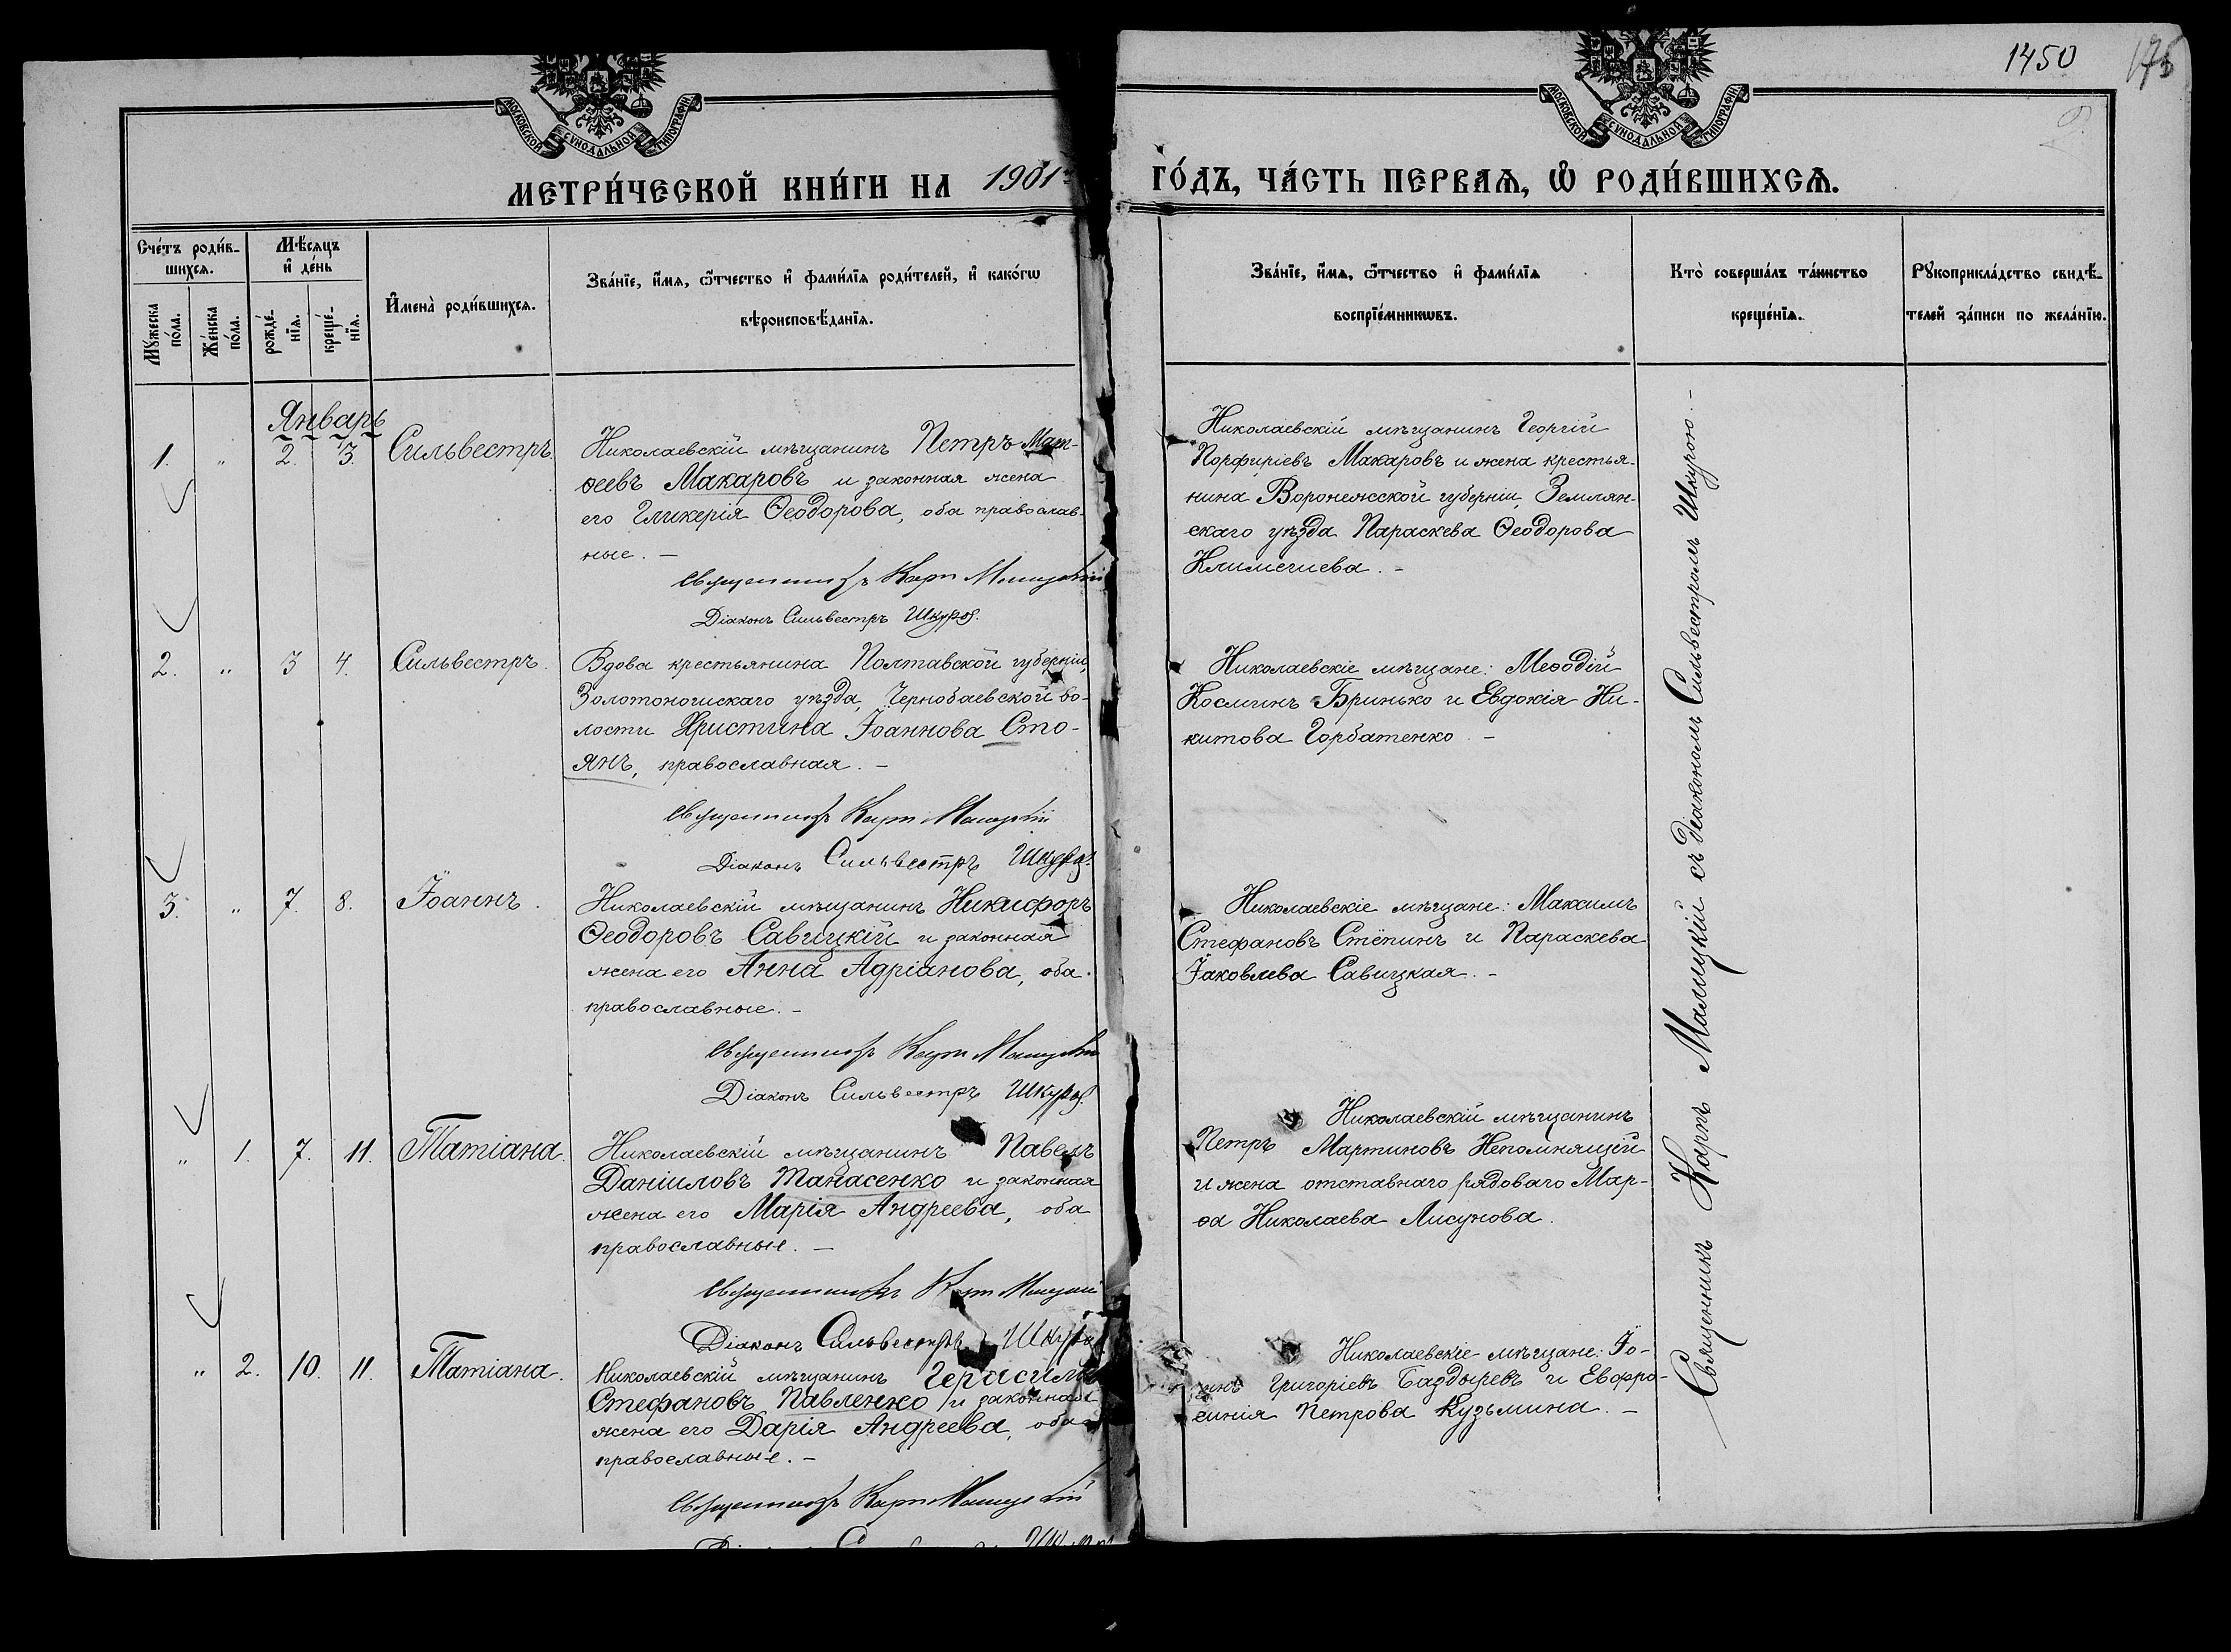 1450
175
МОСКОВСКОЙ СУНОДАЛЬНОЙ ТИПОГРАФІИ
МОСКОВСКОЙ СУНОДАЛЬНОЙ ТИПОГРАФІИ
МЕТРИ́ЧЕСКОЙ КНИ́ГИ НА 1901 ГО́ДЪ, ЧА́СТЬ ПЕРВАѦ, Ѡ҆ РОДИ́ВШИХСѦ.
Сче́тъ роди́в-
шихсѧ.
Мꙋ́жеска
по́ла.
Же́нска
по́ла.
Мѣ́сѧцъ
и҆ де́нь
рожде́-
нїѧ.
креще́-
нїѧ.
И҆мена̀ роди́вшихсѧ.
Зва́нїе, и҆́мѧ, ѻ҆́тчество и҆ фами́лїѧ роди́телей, и҆ како́гѡ
вѣроисповѣ́данїѧ.
Зва́нїе, и҆́мѧ, ѻ҆́тчество и҆ фами́лїѧ
воспрїе́мникѡвъ.
Кто̀ соверша́лъ та́инство
креще́нїѧ.
Рꙋкоприкла́дство свидѣ́-
телей за́писи по жела́нїю.
Январь
1. " 2. 3. Сильвестръ.
Николаевскій мѣщанинъ Петръ Мат-
ѳеевъ Макаровъ и законная жена
его Гликерія Ѳеодорова, оба православ-
ные. —
Священникъ Карп Малицкій
Діаконъ Сильвестръ Шкура.
Николаевскій мѣщанинъ Георгій
Порфиріевъ Макаровъ и жена крестья-
нина Воронежской губерніи, Землян-
скаго уѣзда Параскева Ѳеодорова
2. " 3 4. Сильвестръ.
Вдова крестьянина Полтавской губерніи,
Золотоношскаго уѣзда, Чернобаевской во-
лости Христина Іоаннова Сто-
янъ, православная. —
Священникъ Карп Малицкій
Діаконъ Сильвестръ Шкура.
Николаевскіе мѣщане: Меѳодій
Косминъ Бринько и Евдокія Ни-
китова Горбатенко —
3. " 7. 8. Іоаннъ.
Николаевскій мѣщанинъ Никифоръ
Ѳеодоровъ Савицкій и законная
жена его Анна Адріанова, оба
православные. —
Священникъ Карп Малицкій
Діаконъ Сильвестръ Шкура.
Николаевскіе мѣщане: Максимъ
Стефановъ Стёпинъ и Параскева
Іаковлева Савицкая. —
" 1. 7. 11. Татіана.
Николаевскій мѣщанинъ Павелъ
Даніиловъ Танасенко и законная
жена его Марія Андреева, оба
православные. —
Священникъ Карп Малицкій
Діаконъ Сильвестръ Шкура
Николаевскій мѣщанинъ
Петръ Мартиновъ Непомнящій
и жена отставнаго рядоваго Мар-
ѳа Николаева Лисунова.
" 2. 10. 11. Татіана.
Николаевскій мѣщанинъ Герасимъ
Стефановъ Павленко и законная
жена его Дарія Андреева, оба
православные. —
Священникъ Карп Малицкій
Николаевскіе мѣщане: Іо-
аннъ Григоріевъ Баздыревъ и Евфро-
синія Петрова Кузьмина. —
Священникъ Карпъ Малицкій съ діакономъ Сильвестромъ Шкурою. —